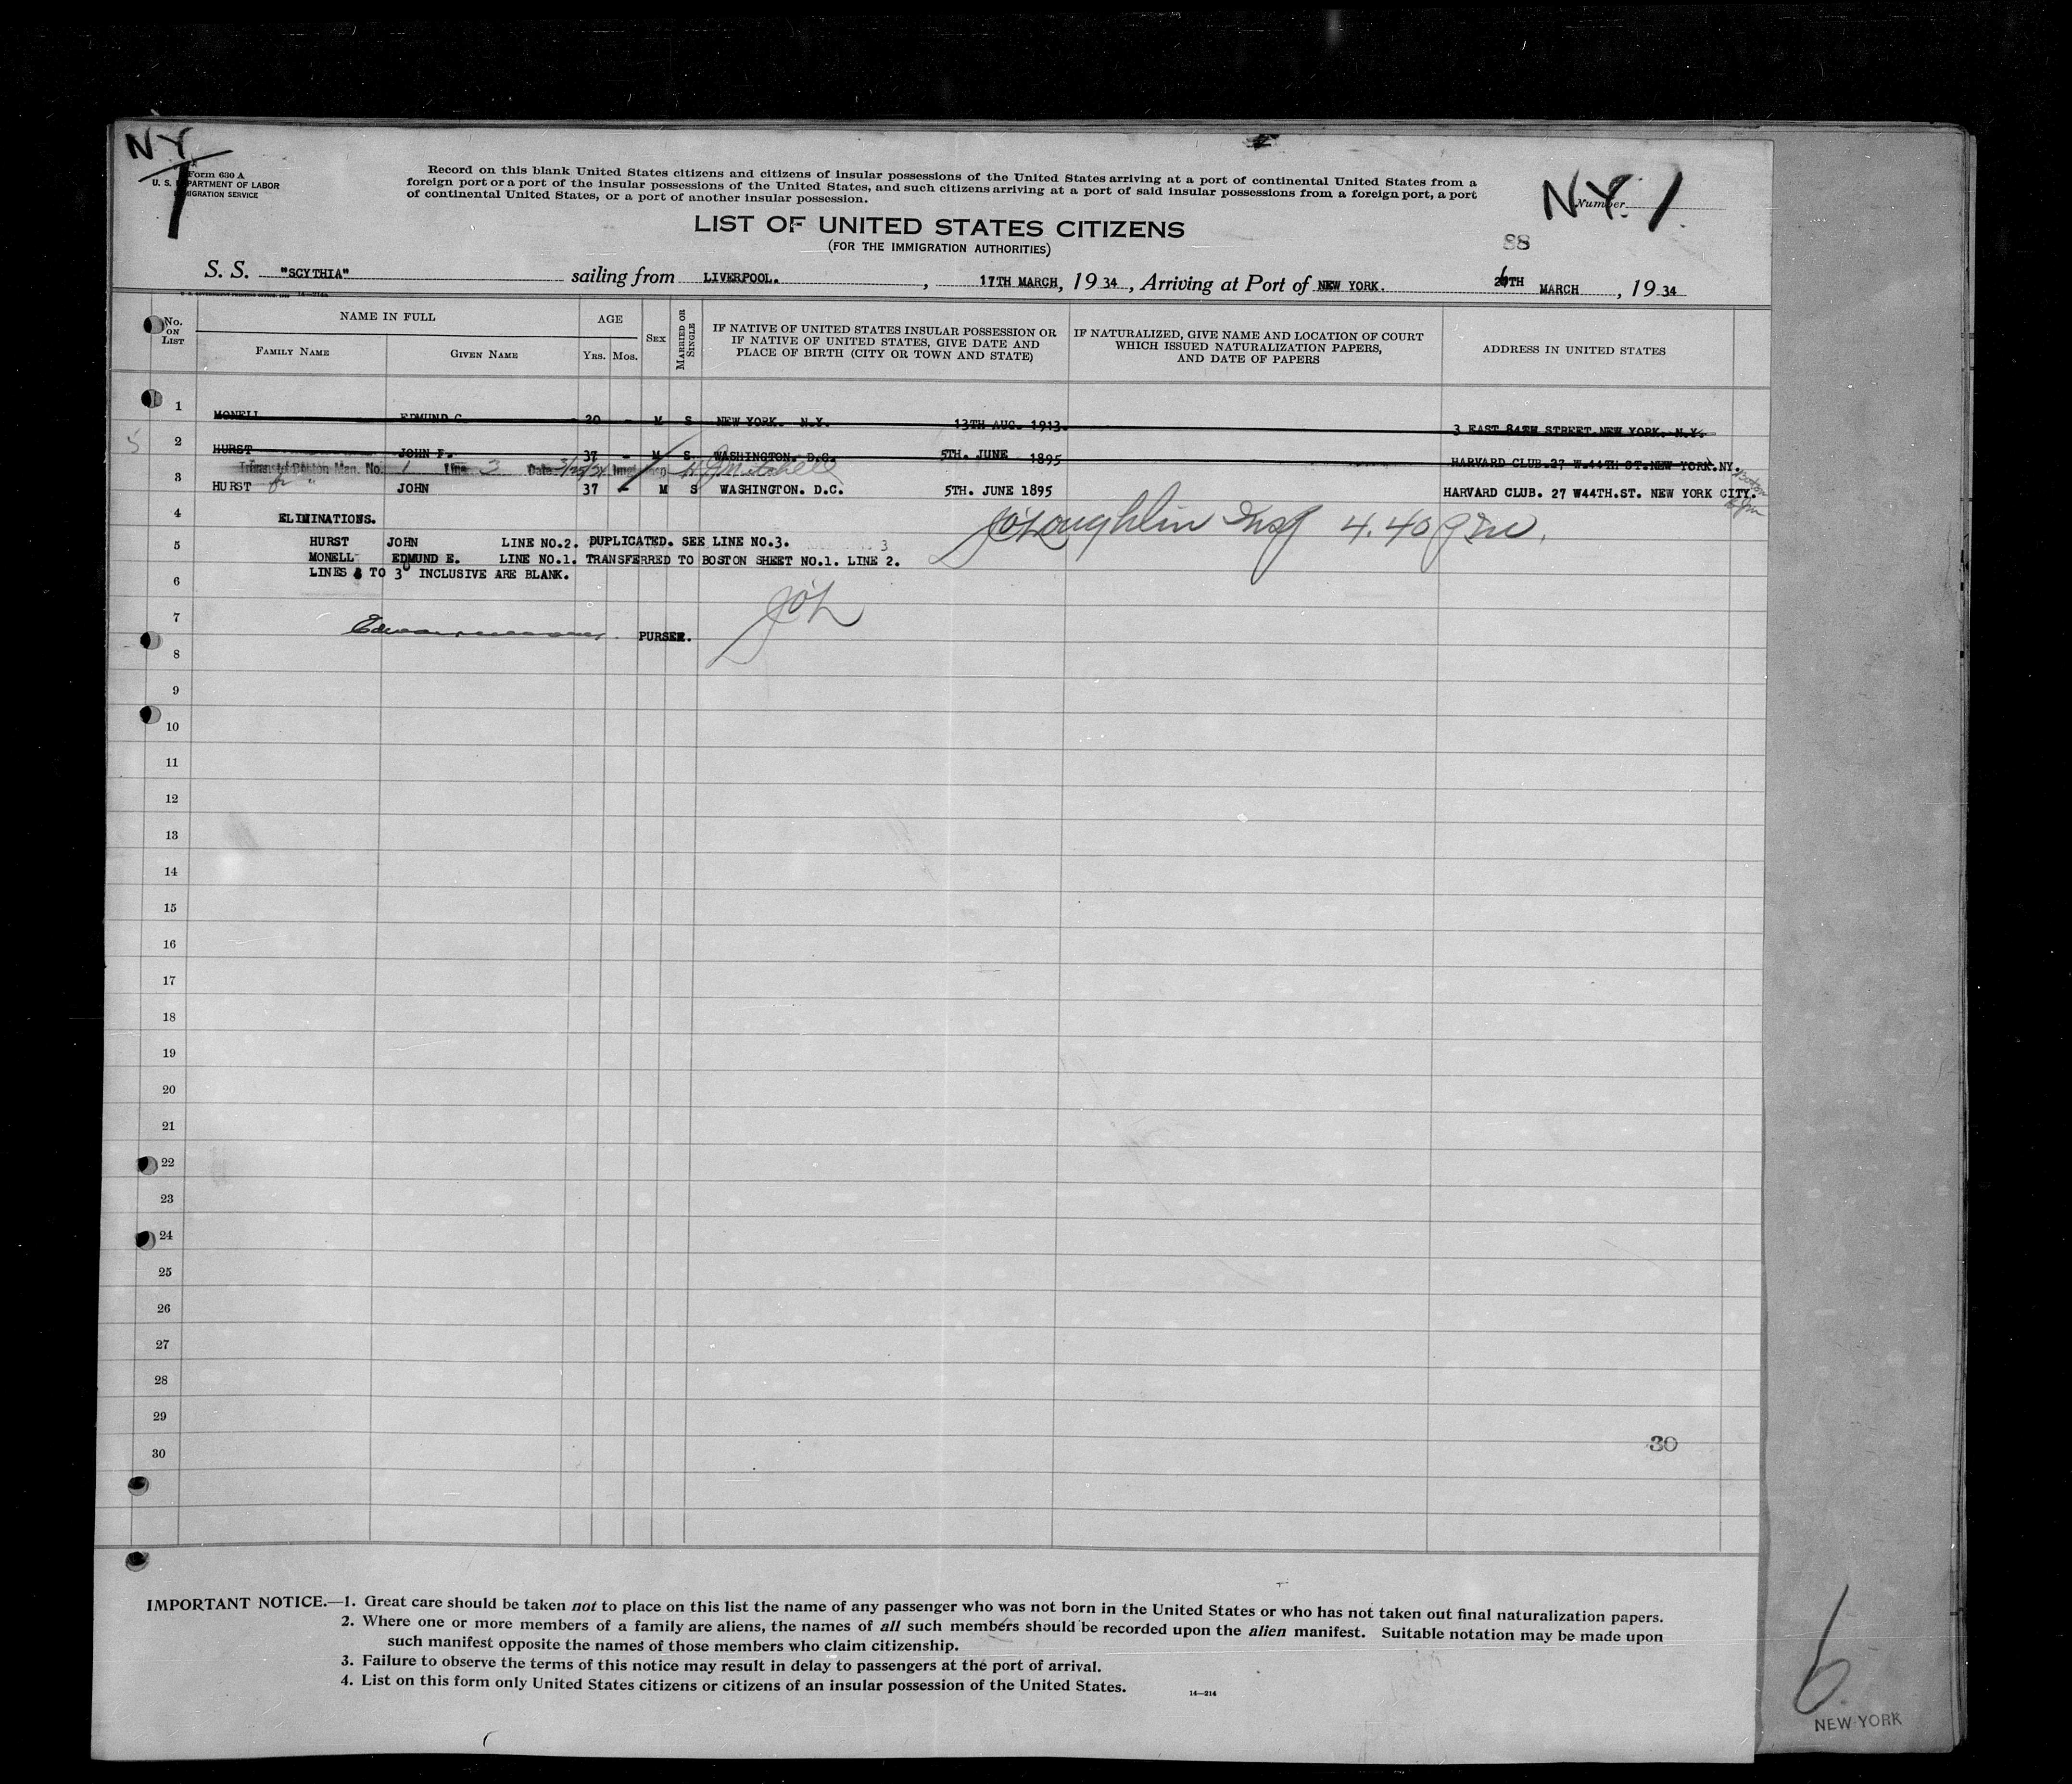 NY
1
Form 630 A
U. S. DEPARTMENT OF LABOR
IMMIGRATION SERVICE
Record on this blank United States citizens and citizens of insular possessions of the United States arriving at a port of continental United States from a
foreign port or a port of the insular possessions of the United States, and such citizens arriving at a port of said insular possessions from a foreign port, a port
of continental United States, or a port of another insular possession.
NY. 1
Number
LIST OF UNITED STATES CITIZENS
(FOR THE IMMIGRATION AUTHORITIES)
88
S. S. "SCYTHIA" sailing from LIVERPOOL. , 17TH MARCH, 19 34 , Arriving at Port of NEW YORK. 26TH MARCH , 19 34
No. ON LIST
NAME IN FULL
FAMILY NAME
GIVEN NAME
AGE
YRS. MOS.
SEX
MARRIED OR SINGLE
IF NATIVE OF UNITED STATES INSULAR POSSESSION OR
IF NATIVE OF UNITED STATES, GIVE DATE AND
PLACE OF BIRTH (CITY OR TOWN AND STATE)
IF NATURALIZED, GIVE NAME AND LOCATION OF COURT
WHICH ISSUED NATURALIZATION PAPERS,
AND DATE OF PAPERS
ADDRESS IN UNITED STATES
1 MONELL EDMUND C 20 - M S NEW YORK. N.Y. 13TH AUG. 1913. 3 EAST 84TH STREET.NEW YORK. N.Y.
5
2 HURST JOHN F. 37 - M S. WASHINGTON. D.C. 5TH. JUNE 1895 HARVARD CLUB.27 W.44TH ST.NEW YORK.NY.
Boston Man. No. 1 Line 3 Date Insp. Mitchell
3 HURST JOHN 37 - M S WASHINGTON. D.C. 5TH. JUNE 1895 HARVARD CLUB. 27 W44TH.ST. NEW YORK CITY.
4 ELIMINATIONS.
J O'Loughlin Insp 4.40 pm.
5 HURST JOHN LINE NO.2. DUPLICATED. SEE LINE NO.3. 3
MONELL EDMUND E. LINE NO.1. TRANSFERRED TO BOSTON SHEET NO.1. LINE 2.
6 LINES TO 30 INCLUSIVE ARE BLANK.
JO'L
7
PURSER.
8
9
10
11
12
13
14
15
16
17
18
19
20
21
22
23
24
25
26
27
28
29
30 30
IMPORTANT NOTICE.—1. Great care should be taken not to place on this list the name of any passenger who was not born in the United States or who has not taken out final naturalization papers.
2. Where one or more members of a family are aliens, the names of all such members should be recorded upon the alien manifest. Suitable notation may be made upon
such manifest opposite the names of those members who claim citizenship.
3. Failure to observe the terms of this notice may result in delay to passengers at the port of arrival.
4. List on this form only United States citizens or citizens of an insular possession of the United States.
14—214
6
NEW YORK